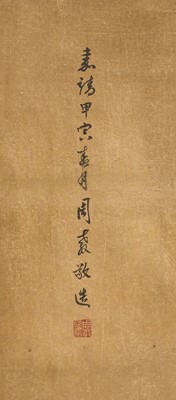 嘉靖甲寅春月周裝敬造